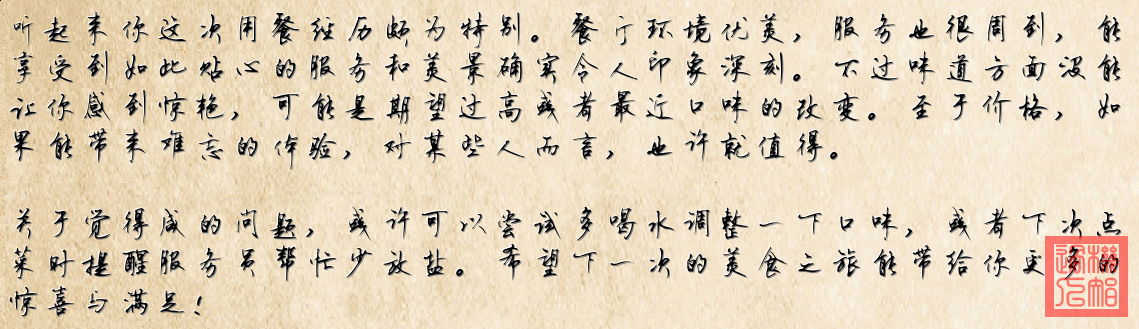 听起来你这次用餐经历颇为特别。餐厅环境优美，服务也很周到，能
享受到如此贴心的服务和美景确实令人印象深刻。不过味道方面没能
让你感到惊艳，可能是期望过高或者最近口味的改变。至于价格，如
果能带来难忘的体验，对某些人而言，也许就值得。
关于觉得咸的问题，或许可以尝试多喝水调整一下口味，或者下次点
菜时提醒服务员帮忙少放盐。希望下一次的美食之旅能带给你更多的
惊喜与满足！